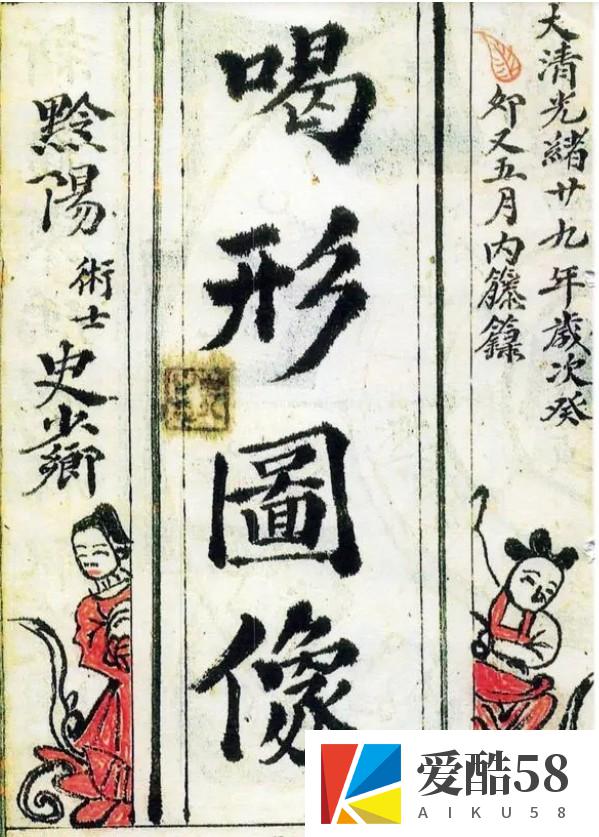 大清光緒廿九年歲次癸
卯又五月内籐籙
喝形圖像
黔陽術士史少卿
爱酷58
AIKU58